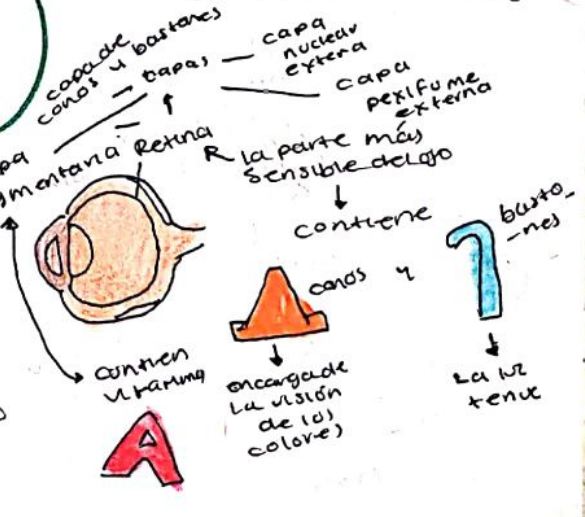 capa de
conos y bastones
capas
capa
nuclear
externa
capa
pexifume
externa
pa
gmentaria
Retina
la parte más
sensible del ojo
contiene
conos y
basto_
_nes
contien
vitamina
A
encargade
La visión
de los
colores
La luz
tenue